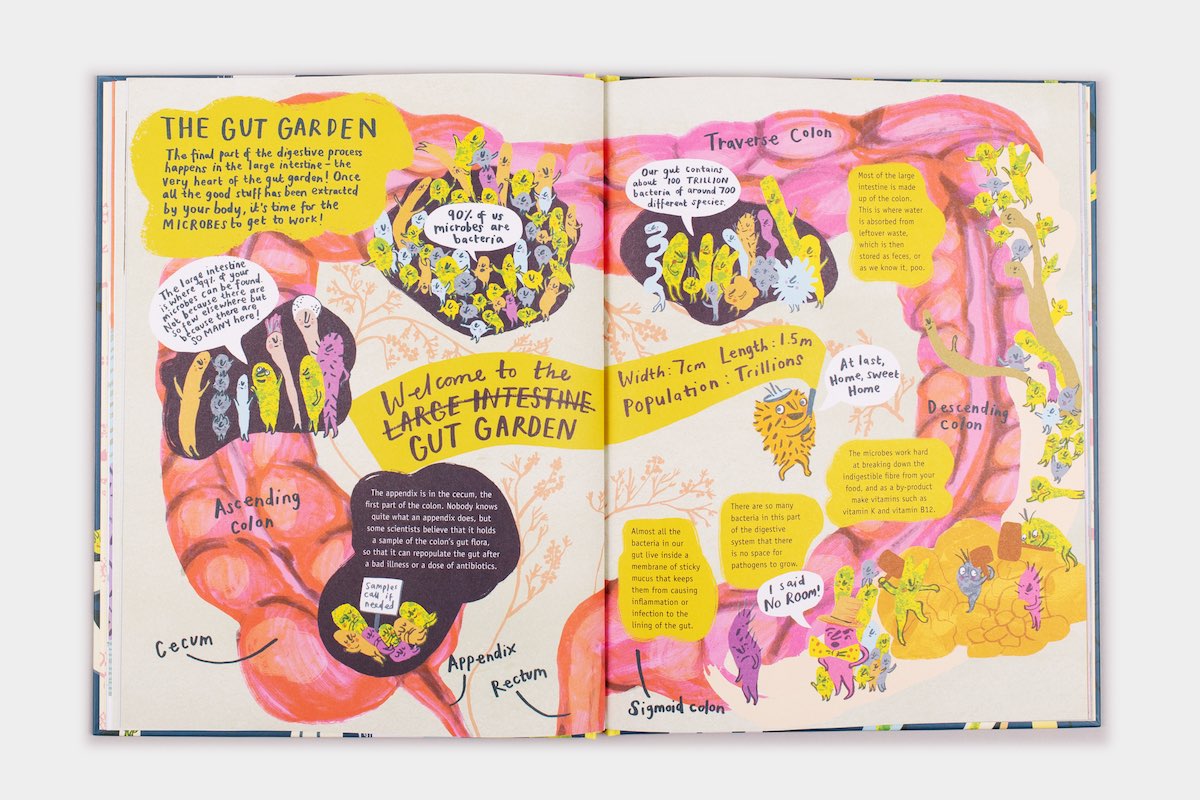 THE GUT GARDEN
The final part of the digestive process
happens in the large intestine – the
very heart of the gut garden! Once
all the good stuff has been extracted
by your body, it's time for the
MICROBES to get to work!
The large intestine
is where 99% of your
microbes can be found.
Not because there are
so few elsewhere but
because there are
SO MANY here!
90% of us
microbes are
bacteria
Welcome to the
LARGE INTESTINE
GUT GARDEN
Ascending
colon
The appendix is in the cecum, the
first part of the colon. Nobody knows
quite what an appendix does, but
some scientists believe that it holds
a sample of the colon's gut flora,
so that it can repopulate the gut after
a bad illness or a dose of antibiotics.
Samples
call if
needed
Cecum
Appendix
Rectum
Traverse Colon
Our gut contains
about 100 TRILLION
bacteria of around 700
different species.
Most of the large
intestine is made
up of the colon.
This is where water
is absorbed from
leftover waste,
which is then
stored as feces, or
as we know it, poo.
Width: 7cm Length: 1.5m
Population: Trillions
At last,
Home, sweet
Home
Descending
colon
The microbes work hard
at breaking down the
indigestible fibre from your
food, and as a by-product
make vitamins such as
vitamin K and vitamin B12.
There are so many
bacteria in this part
of the digestive
system that there
is no space for
pathogens to grow.
Almost all the
bacteria in our
gut live inside a
membrane of sticky
mucus that keeps
them from causing
inflammation or
infection to the
lining of the gut.
I said
NO ROOM!
Sigmoid colon